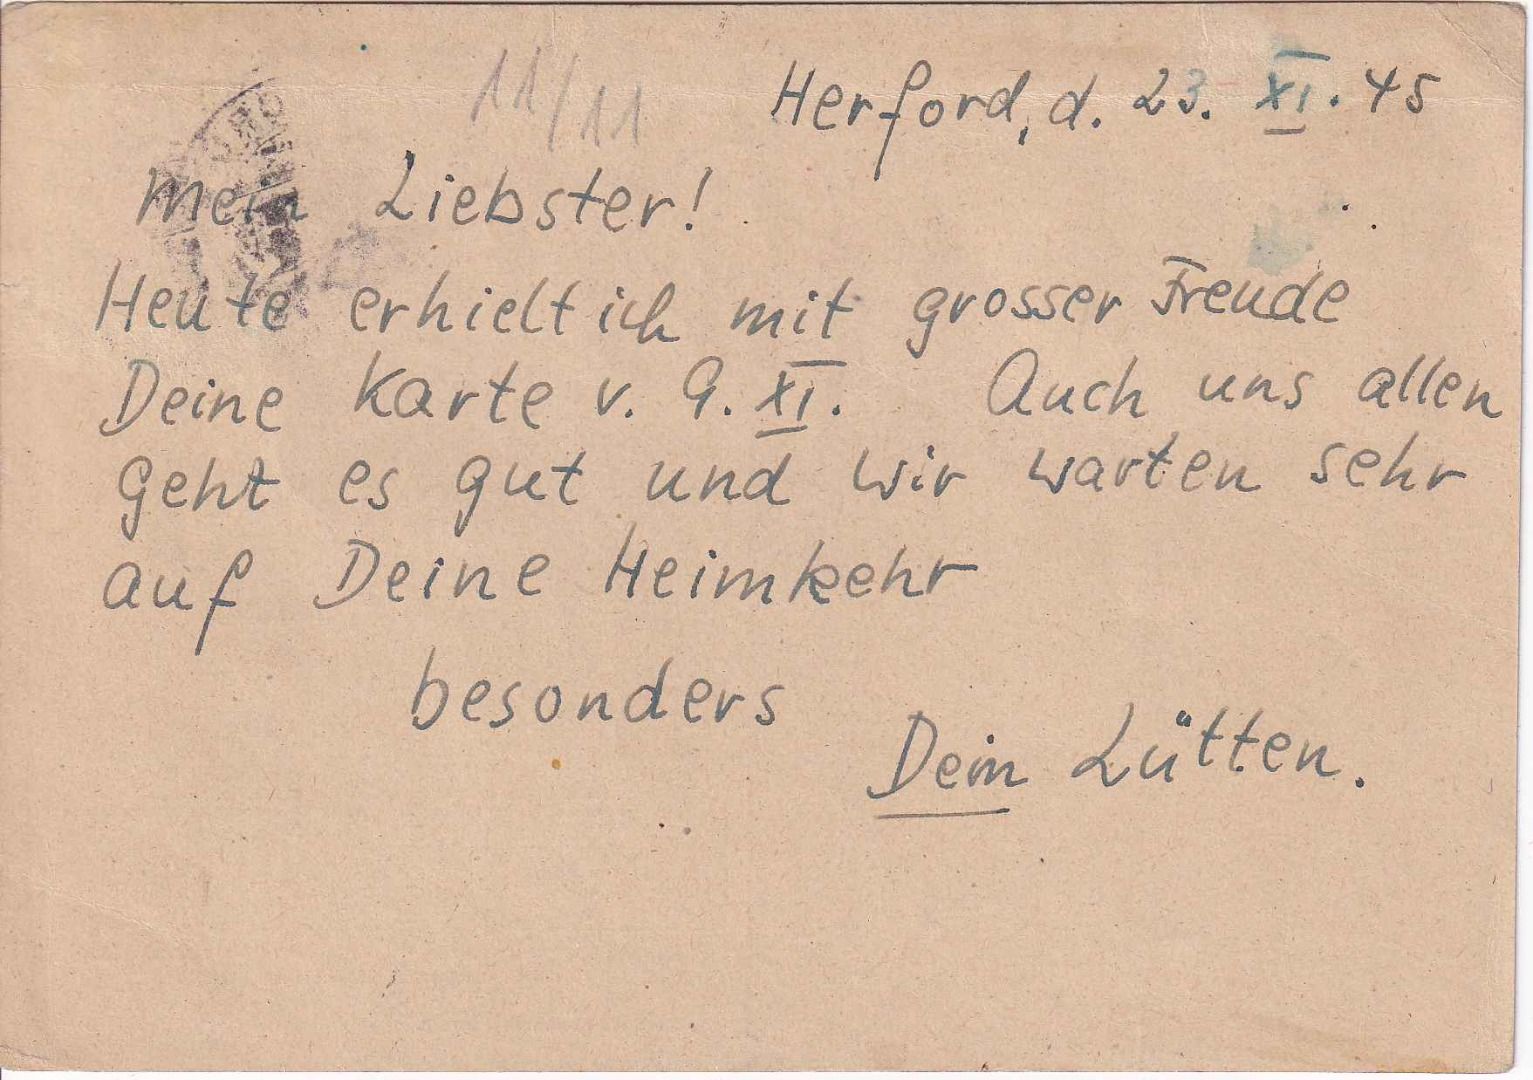 11/11
Herford, d. 23. XI. 45
Mein Liebster!
Heute erhielt ich mit grosser Freude
Deine Karte v. 9. XI. Auch uns allen
geht es gut und wir warten sehr
auf Deine Heimkehr
besonders
Dein Lütten.